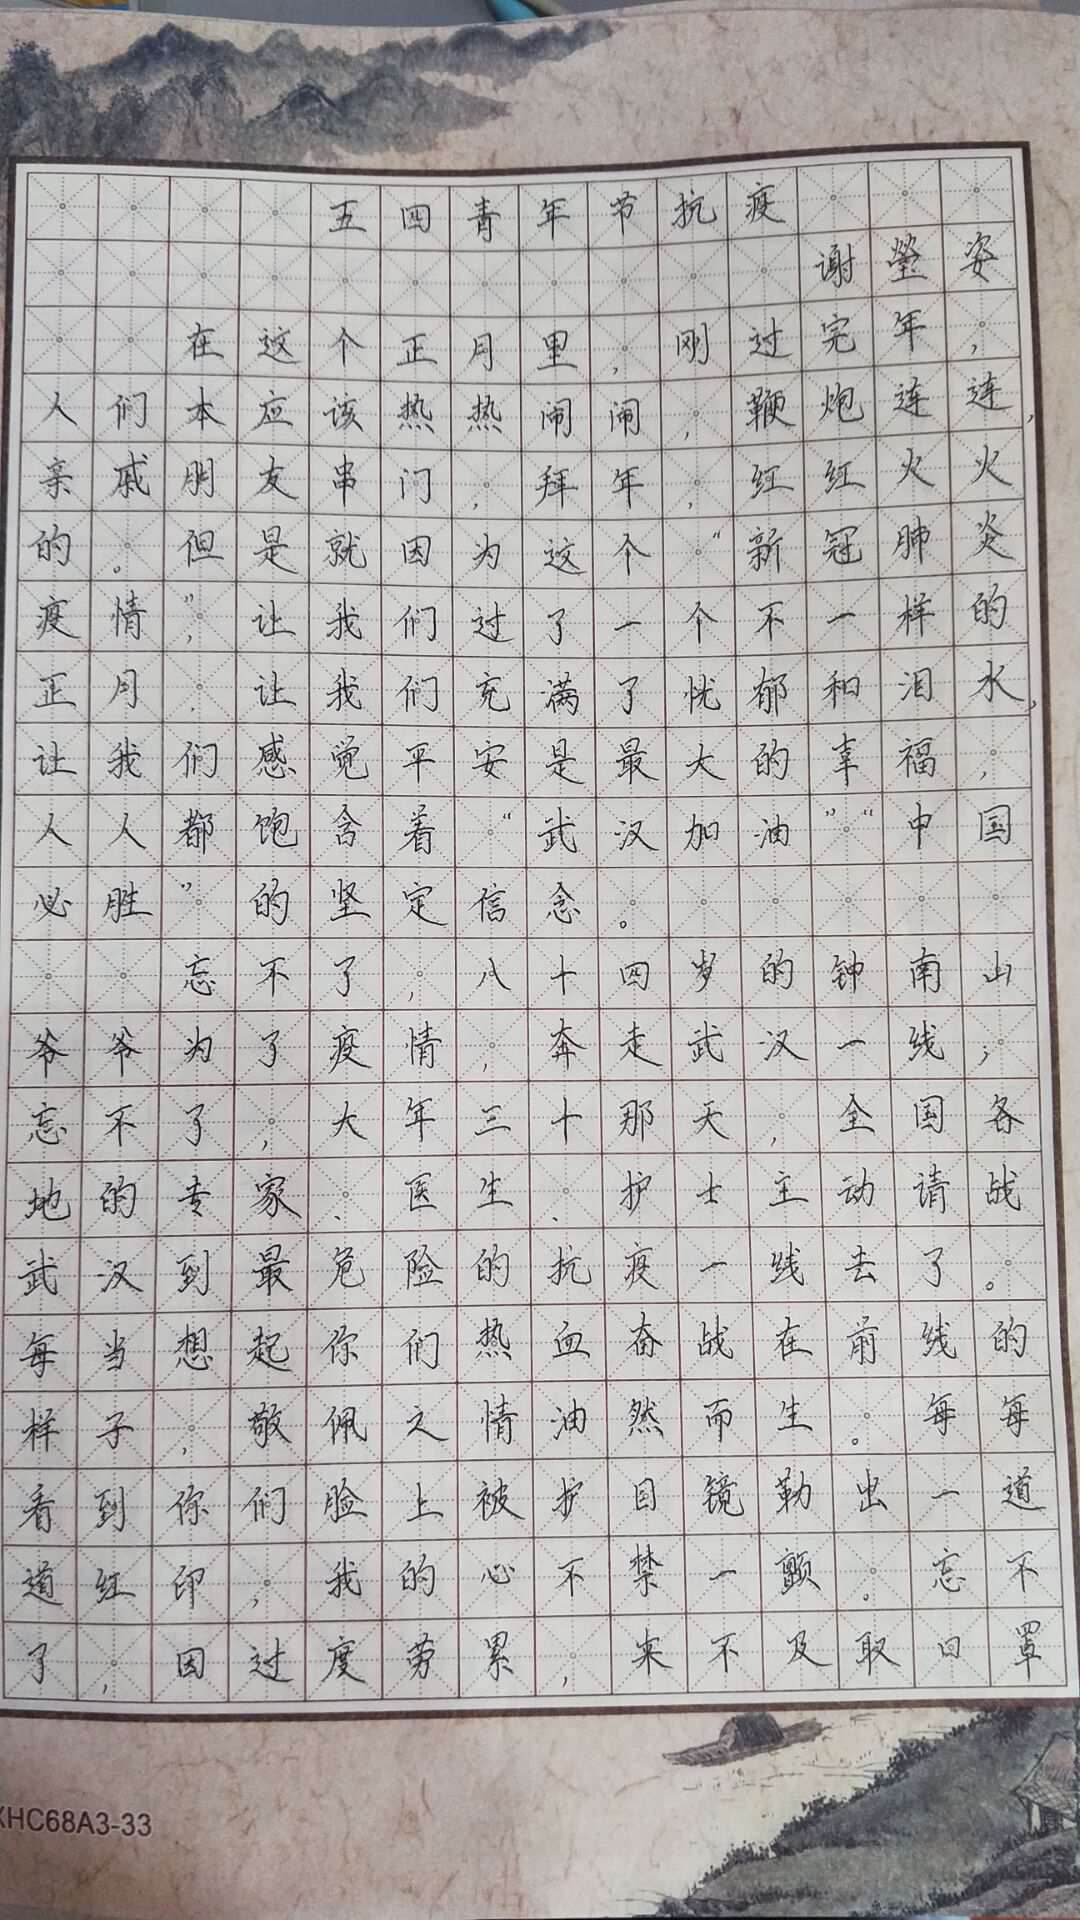 五四青年节抗疫
谢莹姿
在这个正月里，刚过完年，
人们本应该热热闹闹，鞭炮连连，
亲戚朋友串门，拜年，红红火火
的。但是就因为这个“新冠肺炎
疫情”，让我们过了一个不一样的
正月．让我们充满了忧郁和泪水，
让我们感觉平安是最大的幸福，
人人都饱含着“武汉加油”“中国
必胜”的坚定信念。
忘不了，八十四岁的钟南山
爷爷为了疫情，奔走武汉一线；
忘不了，大年三十那天，全国各
地的专家、医生、护士主动请战
武汉到最危险的抗疫一线去了。
每当想起你们热血奋战在前线的
样子，敬佩之情油然而生。每每
看到你们脸上被护目镜勒出一道
道红印，我的心不禁一颤。忘不
了，因过度劳累，来不及取口罩
XHC68A3-33